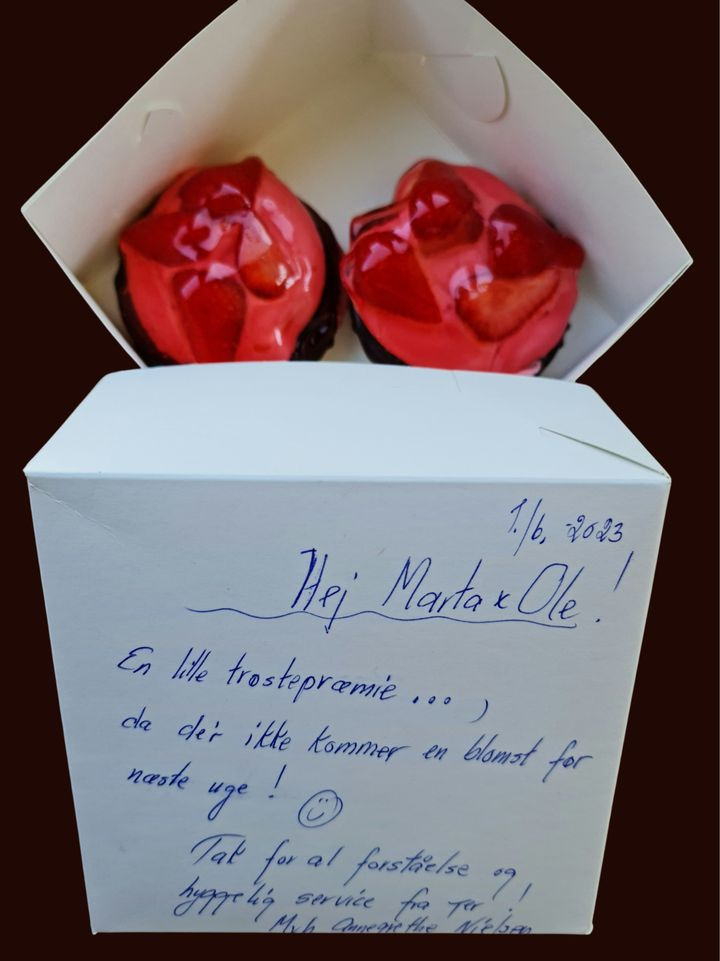 1./6, -2023
Hej Marta & Ole!
En lille trøstepræmie...,
da dér ikke kommer en blomst før
næste uge! ☺
Tak for al forståelse og
hyggelig service fra Jer!
Mvh Annegrethe Nielsen